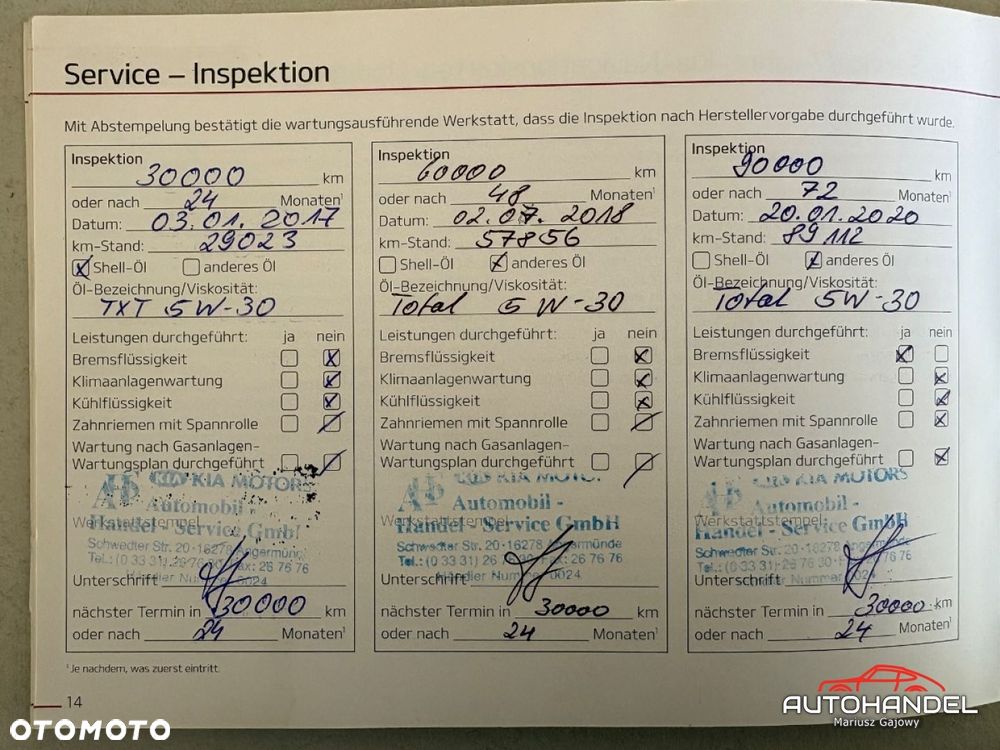 Service – Inspektion
Mit Abstempelung bestätigt die wartungsausführende Werkstatt, dass die Inspektion nach Herstellervorgabe durchgeführt wurde.
Inspektion
30000 km
oder nach 24 Monaten¹
Datum: 03.01.2017
km-Stand: 29023
x Shell-Öl anderes Öl
Öl-Bezeichnung/Viskosität:
TXT 5W-30
Leistungen durchgeführt: ja nein
Bremsflüssigkeit x
Klimaanlagenwartung x
Kühlflüssigkeit x
Zahnriemen mit Spannrolle
Wartung nach Gasanlagen-
Wartungsplan durchgeführt
AHS KIA MOTORS
Automobil -
Handel - Service GmbH
Werkstattstempel:
Schwedter Str. 20 · 16278 Angermünde
Tel.: (0 33 31) 26 76 30 · Fax: 26 76 76
Händler Nummer 0024
Unterschrift
nächster Termin in 30000 km
oder nach 24 Monaten¹
Inspektion
60000 km
oder nach 48 Monaten¹
Datum: 02.07.2018
km-Stand: 57856
Shell-Öl x anderes Öl
Öl-Bezeichnung/Viskosität:
Total 5W-30
Leistungen durchgeführt: ja nein
Bremsflüssigkeit x
Klimaanlagenwartung x
Kühlflüssigkeit x
Zahnriemen mit Spannrolle
Wartung nach Gasanlagen-
Wartungsplan durchgeführt
AHS KIA MOTOR
Automobil -
Handel - Service GmbH
Werkstattstempel:
Schwedter Str. 20 · 16278 Angermünde
Tel.: (0 33 31) 26 76 30 · Fax: 26 76 76
Händler Nummer 0024
Unterschrift
nächster Termin in 30000 km
oder nach 24 Monaten¹
Inspektion
90000 km
oder nach 72 Monaten¹
Datum: 20.01.2020
km-Stand: 89112
Shell-Öl x anderes Öl
Öl-Bezeichnung/Viskosität:
Total 5W-30
Leistungen durchgeführt: ja nein
Bremsflüssigkeit x
Klimaanlagenwartung x
Kühlflüssigkeit x
Zahnriemen mit Spannrolle x
Wartung nach Gasanlagen-
Wartungsplan durchgeführt x
AHS KIA MOTORS
Automobil -
Handel - Service GmbH
Werkstattstempel:
Schwedter Str. 20 · 16278 Angermünde
Tel.: (0 33 31) 26 76 30 · Fax: 26 76 76
Händler Nummer 0024
Unterschrift
nächster Termin in 30000 km
oder nach 24 Monaten¹
¹Je nachdem, was zuerst eintritt.
14
OTOMOTO
AUTOHANDEL
Mariusz Gajowy